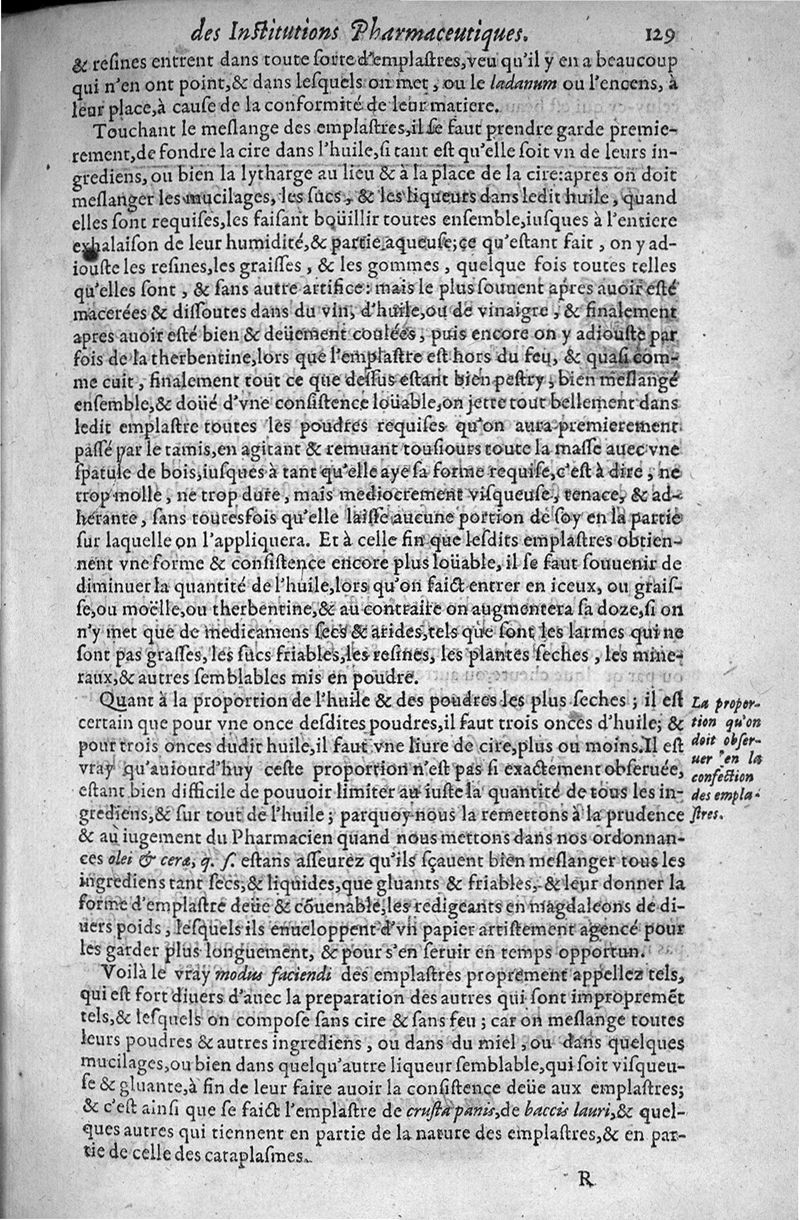 des Inſtitutions Pharmaceutiques. 129
& reſines entrent dans toute ſorte d'emplaſtres,veu qu'il y en a beaucoup
qui n'en ont point,& dans leſquels on met, ou le ladanum ou l'encens, à
leur place,à cauſe de la conformité de leur matiere.
Touchant le meſlange des emplaſtres,il ſe faut prendre garde premie-
rement,de fondre la cire dans l'huile,ſi tant eſt qu'elle ſoit vn de leurs in-
grediens, ou bien la lytharge au lieu & à la place de la cire:apres on doit
meſlanger les mucilages, les ſucs, & les liqueurs dans ledit huile, quand
elles ſont requiſes,les faiſant boüillir toutes enſemble,iuſques à l'entiere
exhalaiſon de leur humidité,& partie aqueuſe;ce qu'eſtant fait, on y ad-
iouſte les reſines,les graiſſes, & les gommes, quelque fois toutes telles
qu'elles ſont, & ſans autre artifice: mais le plus ſouuent apres auoir eſté
macerées & diſſoutes dans du vin, d'huile,ou de vinaigre, & finalement
apres auoir eſté bien & deüement coulées; puis encore on y adiouſte par
fois de la therbentine,lors que l'emplaſtre eſt hors du feu, & quaſi com-
me cuit, finalement tout ce que deſſus eſtant bien peſtry, bien meſlangé
enſemble,& doüé d'vne conſiſtence loüable,on jette tout bellement dans
ledit emplaſtre toutes les poudres requiſes qu'on aura premierement
paſſé par le tamis,en agitant & remuant touſiours toute la maſſe auec vne
ſpatule de bois,iuſques à tant qu'elle aye ſa forme requiſe,c'eſt à dire, ne
trop molle, ne trop dure, mais mediocrement viſqueuſe, tenace, & ad-
hérante, ſans toutesfois qu'elle laiſſe aucune portion de ſoy en la partie
ſur laquelle on l'appliquera. Et à celle fin que leſdits emplaſtres obtien-
nent vne forme & conſiſtence encore plus loüable, il ſe faut ſouuenir de
diminuer la quantité de l'huile,lors qu'on faict entrer en iceux, ou graiſ-
ſe,ou moëlle,ou therbentine,& au contraire on augmentera ſa doze,ſi on
n'y met que de medicamens ſecs & arides,tels que ſont les larmes qui ne
ſont pas graſſes, les ſucs friables,les reſines, les plantes ſeches, les mine-
raux,& autres ſemblables mis en poudre.
Quant à la proportion de l'huile & des poudres les plus ſeches; il eſt
certain que pour vne once deſdites poudres,il faut trois onces d'huile; &
pour trois onces dudit huile,il faut vne liure de cire,plus ou moins.Il eſt
vray qu'auiourd'huy ceſte proportion n'eſt pas ſi exactement obſeruée,
eſtant bien difficile de pouuoir limiter au iuſte la quantité de tous les in-
grediens,& ſur tout de l'huile; parquoy nous la remettons à la prudence
& au iugement du Pharmacien quand nous mettons dans nos ordonnan-
ces olei & ceræ, q. ſ. eſtans aſſeurez qu'ils ſçauent bien meſlanger tous les
ingrediens tant ſecs,& liquides,que gluants & friables, & leur donner la
forme d'emplaſtre deüe & cõuenable,les redigeants en magdaleons de di-
uers poids, leſquels ils enueloppent d'vn papier artiſtement agencé pour
les garder plus longuement, & pour s'en ſeruir en temps opportun.
Voilà le vray modus faciendi des emplaſtres proprement appellez tels,
qui eſt fort diuers d'auec la preparation des autres qui ſont impropremẽt
tels,& leſquels on compoſe ſans cire & ſans feu; car on meſlange toutes
leurs poudres & autres ingrediens, ou dans du miel, ou dans quelques
mucilages,ou bien dans quelqu'autre liqueur ſemblable,qui ſoit viſqueu-
ſe & gluante,à fin de leur faire auoir la conſiſtence deüe aux emplaſtres;
& c'eſt ainſi que ſe faict l'emplaſtre de cruſta panis,de baccis lauri,& quel-
ques autres qui tiennent en partie de la nature des emplaſtres,& en par-
tie de celle des cataplaſmes.
La propor-
tion qu'on
doit obſer-
uer en la
confection
des empla-
ſtres.
R